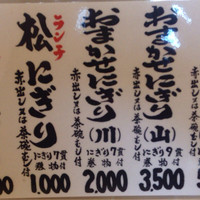 おまかせにぎり(山)
赤出し又は茶碗むし付
にぎり9貫
巻物付
3,500
おまかせにぎり(川)
赤出し又は茶碗むし付
にぎり7貫
巻物付
2,000
ランチ
松にぎり
赤出し又は茶碗むし付
1,000